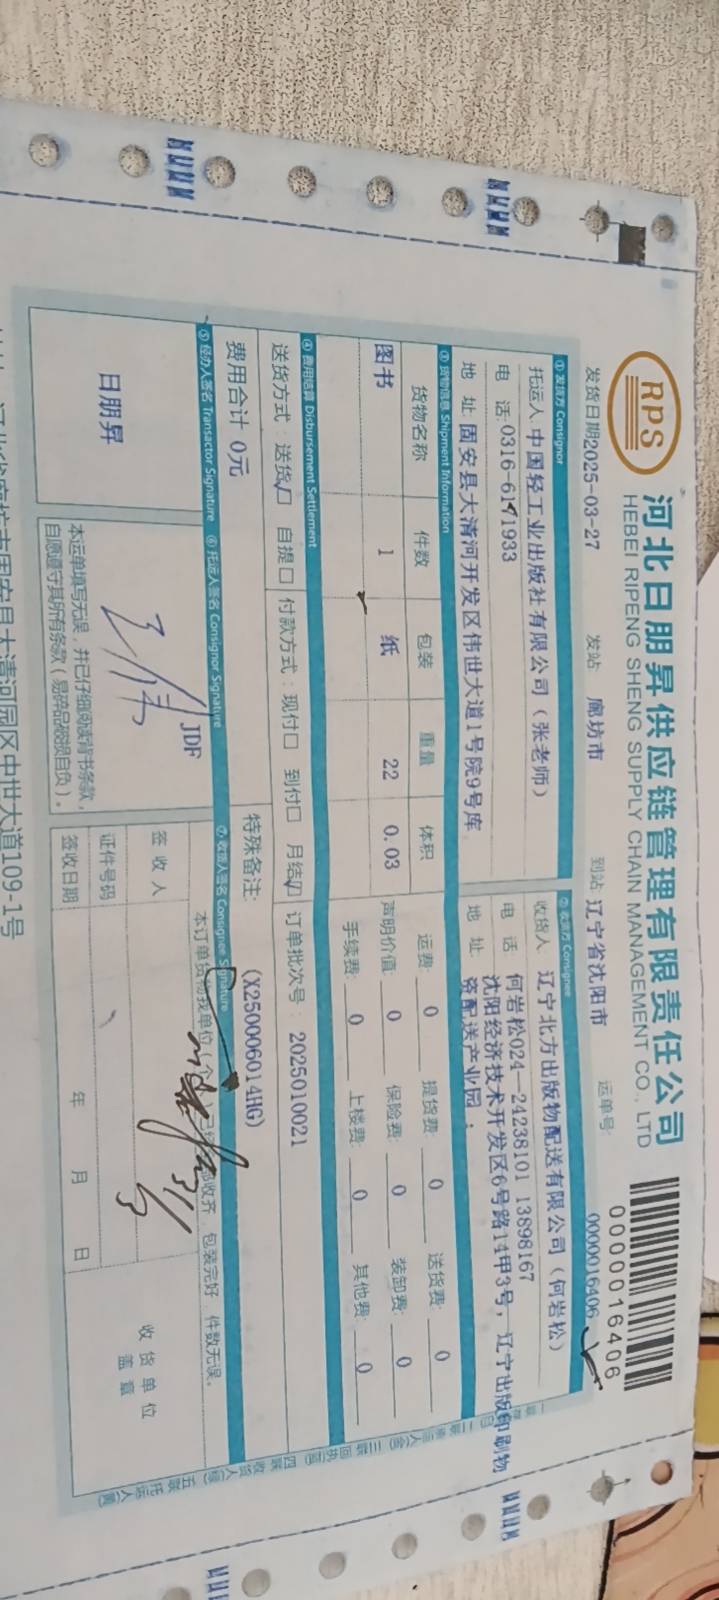 RPS
河北日朋昇供应链管理有限责任公司
HEBEI RIPENG SHENG SUPPLY CHAIN MANAGEMENT CO., LTD
0000016406
发货日期2025-03-27 发站 廊坊市 到站 辽宁省沈阳市 运单号: 0000016406
① 发货方 Consignor ② 收货方 Consignee
托运人 中国轻工业出版社有限公司（张老师） 收货人 辽宁北方出版物配送有限公司（何岩松）
电 话:0316-6171933 电 话 何岩松024—24238101 13898167
地 址 固安县大清河开发区伟世大道1号院9号库 地 址 沈阳经济技术开发区6号路14甲3号，辽宁出版印刷物
资配送产业园；
③ 货物信息 Shipment Information
货物名称 件数 包装 重量 体积 运费: 0 提货费: 0 送货费: 0
图书 1 纸 22 0.03 声明价值: 0 保险费: 0 装卸费: 0
手续费: 0 上楼费: 0 其他费: 0
④ 费用结算 Disbursement Settlement
送货方式：送货☑ 自提□ 付款方式：现付□ 到付□ 月结☑ 订单批次号： 2025010021
费用合计 0元 特殊备注: (X250006014HG)
⑤ 经办人签名 Transactor Signature ⑥ 托运人签名 Consignor Signature ⑦ 收货人签名 Consignee Signature
日朋昇
JDF
本运单填写无误，并已仔细阅读背书条款，
自愿遵守其所有条款（易碎品破损自负）。
签 收 人
证件号码
签收日期 年 月 日
收货单位
盖 章